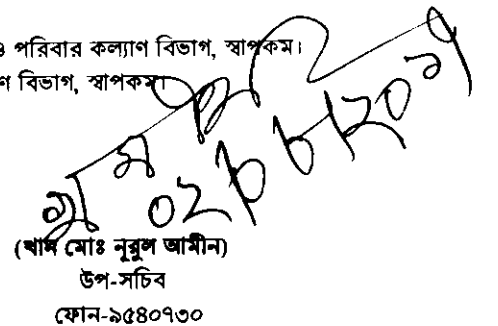 ও পরিবার কল্যাণ বিভাগ, স্বাপকম।
ণ বিভাগ, স্বাপকম।
(খান মোঃ নূরুল আমীন)
উপ-সচিব
ফোন-৯৫৪০৭৩০